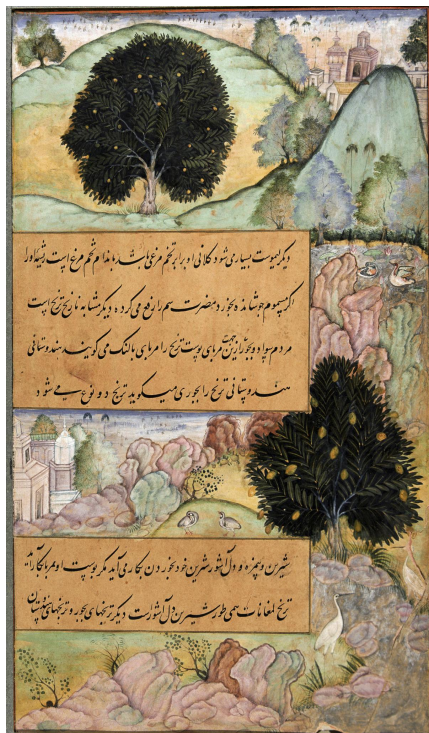 دیگر لیموست بسیاری شود کلانی او برابر تخم مرغی باشد باندام تخم مرغ است ریشه او را
اگر مسموم جوشانده بخورد مضرت سم را رفع می کرده دیگر مشابه نارنج ترنج است
مردم سواد و بجور ازین جهت مربای پوست ترنج را مربای بالنگ می گویند هندوستانی
هندوستانی ترنج را بجوری میگوید ترنج دو نوع می شود
شیرین و بیمزه و دل آشور شیرین خود بخوردن بکار می آید مگر پوست او بمربا بکار آید
ترنج لمغانات همین طور شیرین دل آشور است دیگر ترنجهای بجور و ترنجهای هندوستان